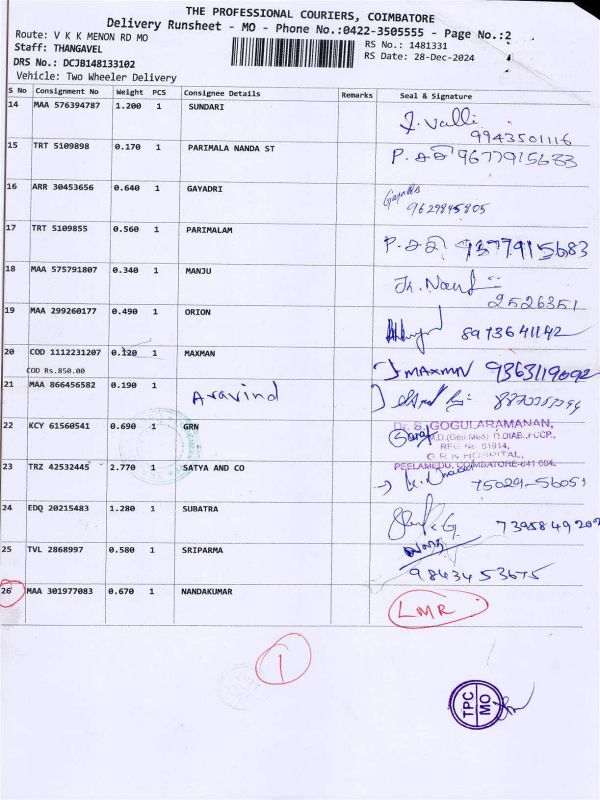 THE PROFESSIONAL COURIERS, COIMBATORE
Delivery Runsheet - MO - Phone No.:0422-3505555 - Page No.:2
Route: V K K MENON RD MO
RS No.: 1481331
Staff: THANGAVEL
RS Date: 28-Dec-2024
DRS No.: DCJB148133102
Vehicle: Two Wheeler Delivery
S No Consignment No Weight PCS Consignee Details Remarks Seal & Signature
14 MAA 576394787 1.200 1 SUNDARI
9943501116
15 TRT 5109898 0.170 1 PARIMALA NANDA ST
9677915683
16 ARR 30453656 0.640 1 GAYADRI
9629845805
17 TRT 5109855 0.560 1 PARIMALAM
18 MAA 575791807 0.340 1 MANJU
2526351
19 MAA 299260177 0.490 1 ORION
8973641142
20 COD 1112231207 0.120 1 MAXMAN MAXMAN 9363119092
COD Rs.850.00
21 MAA 866456582 0.190 1 Aravind
22 KCY 61560541 0.690 1 GRN
Dr. S. GOGULARAMANAN,
G R N HOSPITAL,
PEELAMEDU, COIMBATORE-641 004.
23 TRZ 42532445 2.770 1 SATYA AND CO
75029-56051
24 EDQ 20215483 1.280 1 SUBATRA
25 TVL 2868997 0.580 1 SRIPARMA
9843453675
26 MAA 301977083 0.670 1 NANDAKUMAR LMR
1
TPC
MO